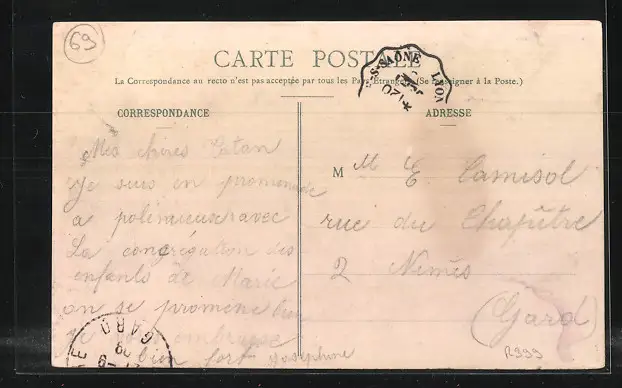 69
CARTE POSTALE
La Correspondance au recto n'est pas acceptée par tous les Pays Etrangers (Se renseigner à la Poste.)
CORRESPONDANCE
ADRESSE
S-SAÔNE LYON
Mes chères Tatan
Je suis en promenade
a polimieux avec
La congrégation des
enfants de Marie
on se promène bien
Je embrasse
bien fort Joséphine
M M E. Camisol
rue du Chapître
2 Nimes
(Gard)
GARD
R999